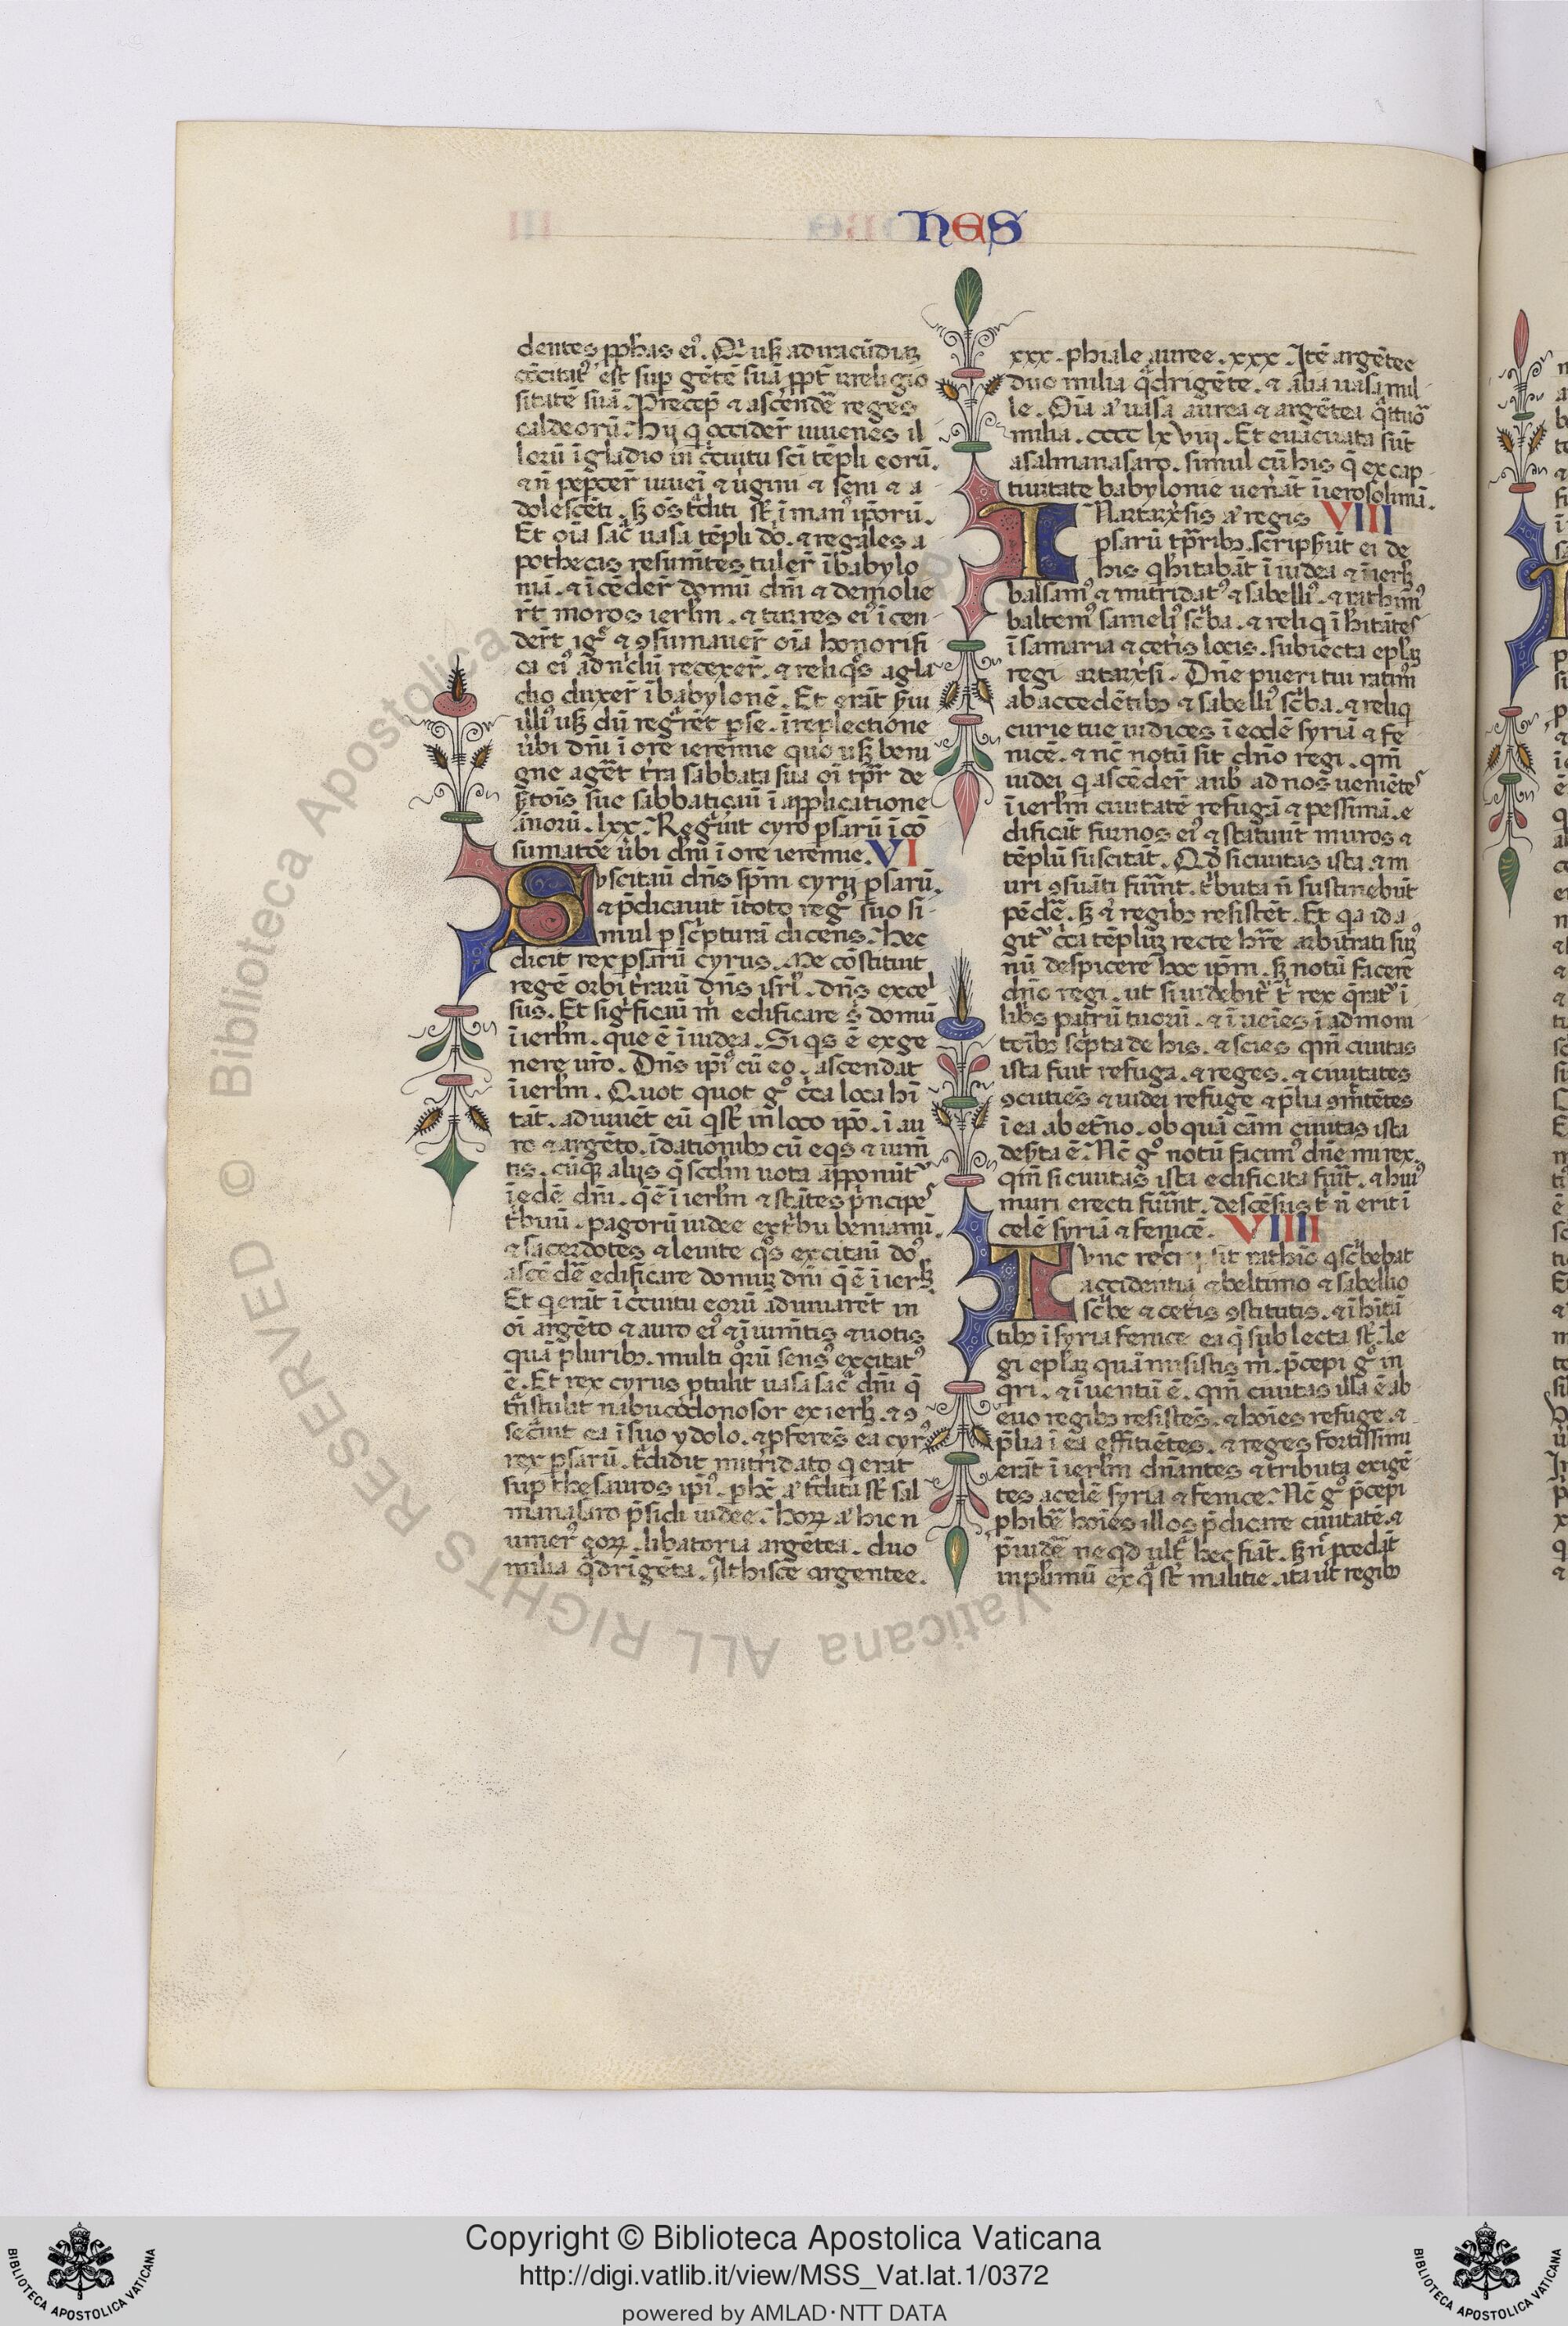 NES
dentes ꝓphas ei⁹. Qͥ usqꝫ ad iracūdiaꝫ
cōcitat⁹ est sup gētē suā ꝓpt̄ irreligio
sitatē suā. Precep̄ & ascēnde reges
caldeorū. Hij q̄ occider̄ iuuenes il
lorū ī gladio in c̄cuitu sc̄i tēpli eorū.
& n̄ peꝑcer̄ iuuēi & uirgini & seni & a
dolescēti. sꝫ oēs t̄diti st̄ ī man⁹ ipōrū.
Et oīa sac̄ uasa tēpli dō. & regales a
pothecas resumētes tuler̄ ī babylo
niā. & īcēder̄ domū dn̄i & demolie
rt̄ moros ierlm̄. & turres ei⁹ īcen
dert̄ igē & ꝯsumauer̄ oīa honorifi
ca ei⁹ ad nīchilū redexer̄. & reliqͦs a gla
dio duxer̄ ī babylonē. Et erāt ẜui
illi⁹ usqꝫ dū regnarēt pse. ī repletione
ūbi dn̄i ī ore ieremie quo usqꝫ beni
gne agēt t̄ra sabbata sua oī tp̄r de
sertōis sue sabbaticaui ī applicatione
annorū. lxx. Regnāt cyro psarū ī cō
sumatōe ūbi dn̄i ī ore ieremie. VI
Suscitaui dn̄s sp̄m cyrij psarū.
& p̄dicauit ī toto regͦ suo si
mul p sc̄pturā dicens. Hec
dicit rex psarū cyrus. Me cōstituit
regē orbi t̄rarū dn̄s isrl̄. dn̄s excel
sus. Et sigͥficaui m̄ edificare s̄ domū
ī ierlm̄. que ē ī iudea. Si qͥs ē ex ge
nere ur̄o. Dn̄s ipī⁹ cū eo. ascendat
ī ierlm̄. Quot quot gͦ c̄ca loca hī
tāt. adiuuēt eū q st̄ in loco ipō. ī au
ro & argēto. ī dationibꝫ cū eqͥs & ium̄
tis. cūqꝫ alijs q̄ scd̄m uota apponūt
ī edē dn̄i. q̄ ē ī ierlm̄ & stātes pͥncipe
t̄buū. pagorū iudee ex t̄bu beniamī.
& sacerdotes & leuite qͦs excitaui dō.
ascēdē edificare domuꝫ dn̄i q̄ ē ī ierlꝫ
Et q̄ erāt ī c̄cuitu eorū adiuuarēt in
oī argēto & auro ei⁹ & ī iumētis & uotis
quā pluribꝫ. multi qͦrū sens⁹ excitat⁹
ē. Et rex cyrus ꝓtulit uasa sac̄ dn̄i q̄
tn̄stulit nabucodonosor ex ierlꝫ. & ꝯ
sec̄uit ea ī suo ydolo. & pferēs ea cyr⁹
rex psarū. t̄didit mitridato q̄ erat
sup thesauros ipī⁹. p hc̄ aͧ t̄dita st̄ sal
manasaro p̄sidi iudee. Hoꝝ aͧ hic n
umer⁹ eoꝝ. libatoria argētea. duo
milia qͣdrigēta. Athisce argentee.
xxx. phiale auree. xxx. Itē argētee
duo milia qͣdrigēte. & alia uasa mil
le. Oīa aͧ uasa aurea & argētea qͣtuor
milia. cccc lxviij. Et euacuata sūt
a salmanasaro. simul cū his q̄ ex cap
tiuitate babylonie uenāt ī ierosolimā.
IN artarxsis aͧ regis VIII
psarū tp̄ribꝫ. scripẜūt ei de
his q̄ hitabāt ī iudea & ī ierlꝫ
balsam⁹ & mitridat⁹ & sabelli⁹. & rathim⁹
baltem⁹ sameli⁹ sc̄ba. & reliqͥ ī hītātes
ī samaria & cet̄is locis. subiecta epl̄aꝫ
regi artarxsi. Dn̄e pueri tui ratim⁹
ab accedētibꝫ & sabelli⁹ sc̄ba. & reliqͥ
curie tue iudices ī ecelē syriā & fe
nicē. & nc̄ notū sit dn̄o regi. qm̄
iudei q ascēder̄ a uob ad nos ueniētes
ī ierlm̄ ciuitatē refugā & pessimā. e
dificāt furnos ei⁹ & statuūt muros &
tēplū suscitāt. Qd̄ si ciuitas ista. & m
uri ꝯsuāti fuīnt. t̄buta n̄ sustinebūt
pēdē. sꝫ & regibꝫ resistēt. Et qͣ id a
git̄ c̄ca tēplūꝫ recte hr̄e arbitrati sum⁹
nū despicere hoc ipm̄. sꝫ notū facere
dn̄o regi. ut si uidebit̄ t̄ rex q̄rat̄ ī
libͥs patrū tuorū. & ī uēies ī admoni
tōibꝫ sc̄pta de his. & scies qm̄ ciuitas
ista fuit refuga. & reges. & ciuitates
ꝯcutiēs & iudei refuge & p̄lia ꝯmītētes
ī ea ab et̄no. ob quā cām ciuitas ista
deẜta ē. Nc̄ gͦ notū facim⁹ dn̄e mi rex.
qm̄ si ciuitas ista edificata fuīt. & hui⁹
muri erecti fuīnt. descēsus t̄ n̄ erit ī
celē syriā & fenicē. VIIII
Tunc resc̄psit rathīo q̄ sc̄bebat
accidentia & beltimo & sabellio
sc̄be & cet̄is ꝯstitutis. & ī hītā
tibꝫ ī syria fenice ea q̄ sub lecta st̄. Le
gi epl̄aꝫ quā misistis m̄. p̄cepi gͦ in
qͥri. & ī uentū ē. qm̄ ciuitas illa ē ab
euo regibꝫ resistēs. & hoīes refuge. &
p̄lia ī ea effitiētes. & reges fortissimi
erāt ī ierlm̄ dn̄antes & tributa exigē
tes a celē syria & fenice. Nc̄ gͦ p̄cepi
phibē hoīes illos p̄dicare ciuitatē. &
p̄uidē ne qͥd ultͣ hec fiāt. sꝫ n̄ pcedāt
in plimū ex q̄ st̄ malitie. ita ut regibꝫ
© Biblioteca Apostolica Vaticana ALL RIGHTS RESERVED
Copyright © Biblioteca Apostolica Vaticana
http://digi.vatlib.it/view/MSS_Vat.lat.1/0372
powered by AMLAD·NTT DATA
BIBLIOTECA APOSTOLICA VATICANA
BIBLIOTECA APOSTOLICA VATICANA